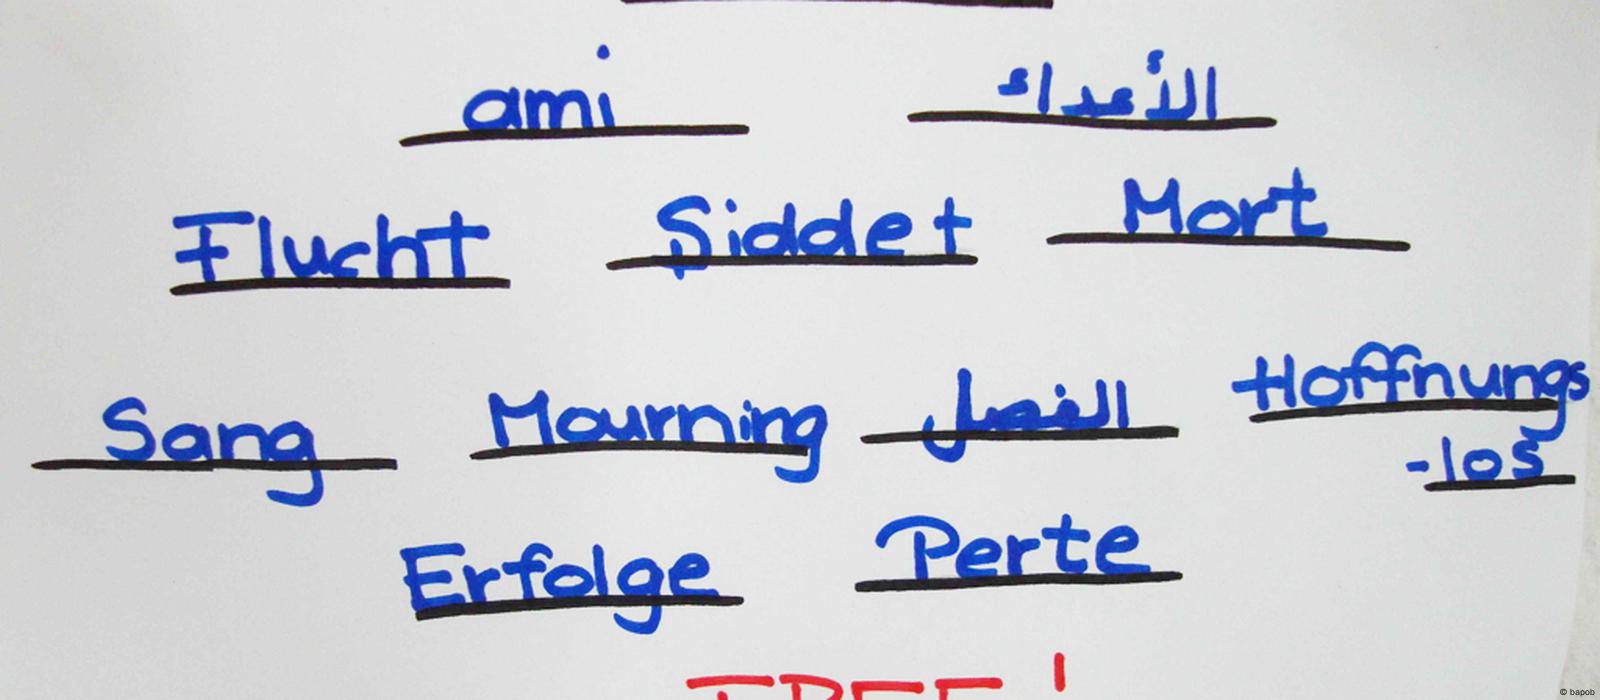 ami الأعداء
Flucht Şiddet Mort
Sang Mourning الفصل Hoffnungs
-los
Erfolge Perte
FREE!
© bapob